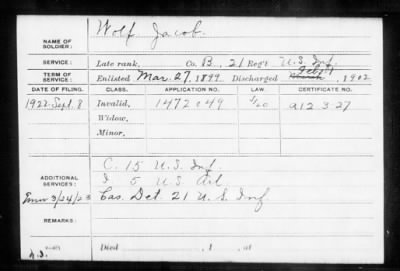 Wolf Jacob.
NAME OF SOLDIER:
SERVICE: Late rank, Co. B, 21 Reg't U.S. Inf.
TERM OF SERVICE: Enlisted Mar. 27, 1899. Discharged Feb. , 1902
DATE OF FILING. CLASS. APPLICATION NO. LAW. CERTIFICATE NO.
1922 Sept. 8 Invalid, 1472049 912327
Widow,
Minor,
C. 15 U.S. Inf.
ADDITIONAL SERVICES: I 5 U.S. Art.
3/24/23 Cas. Det. 21 U.S. Inf.
REMARKS:
Died , 1 , at